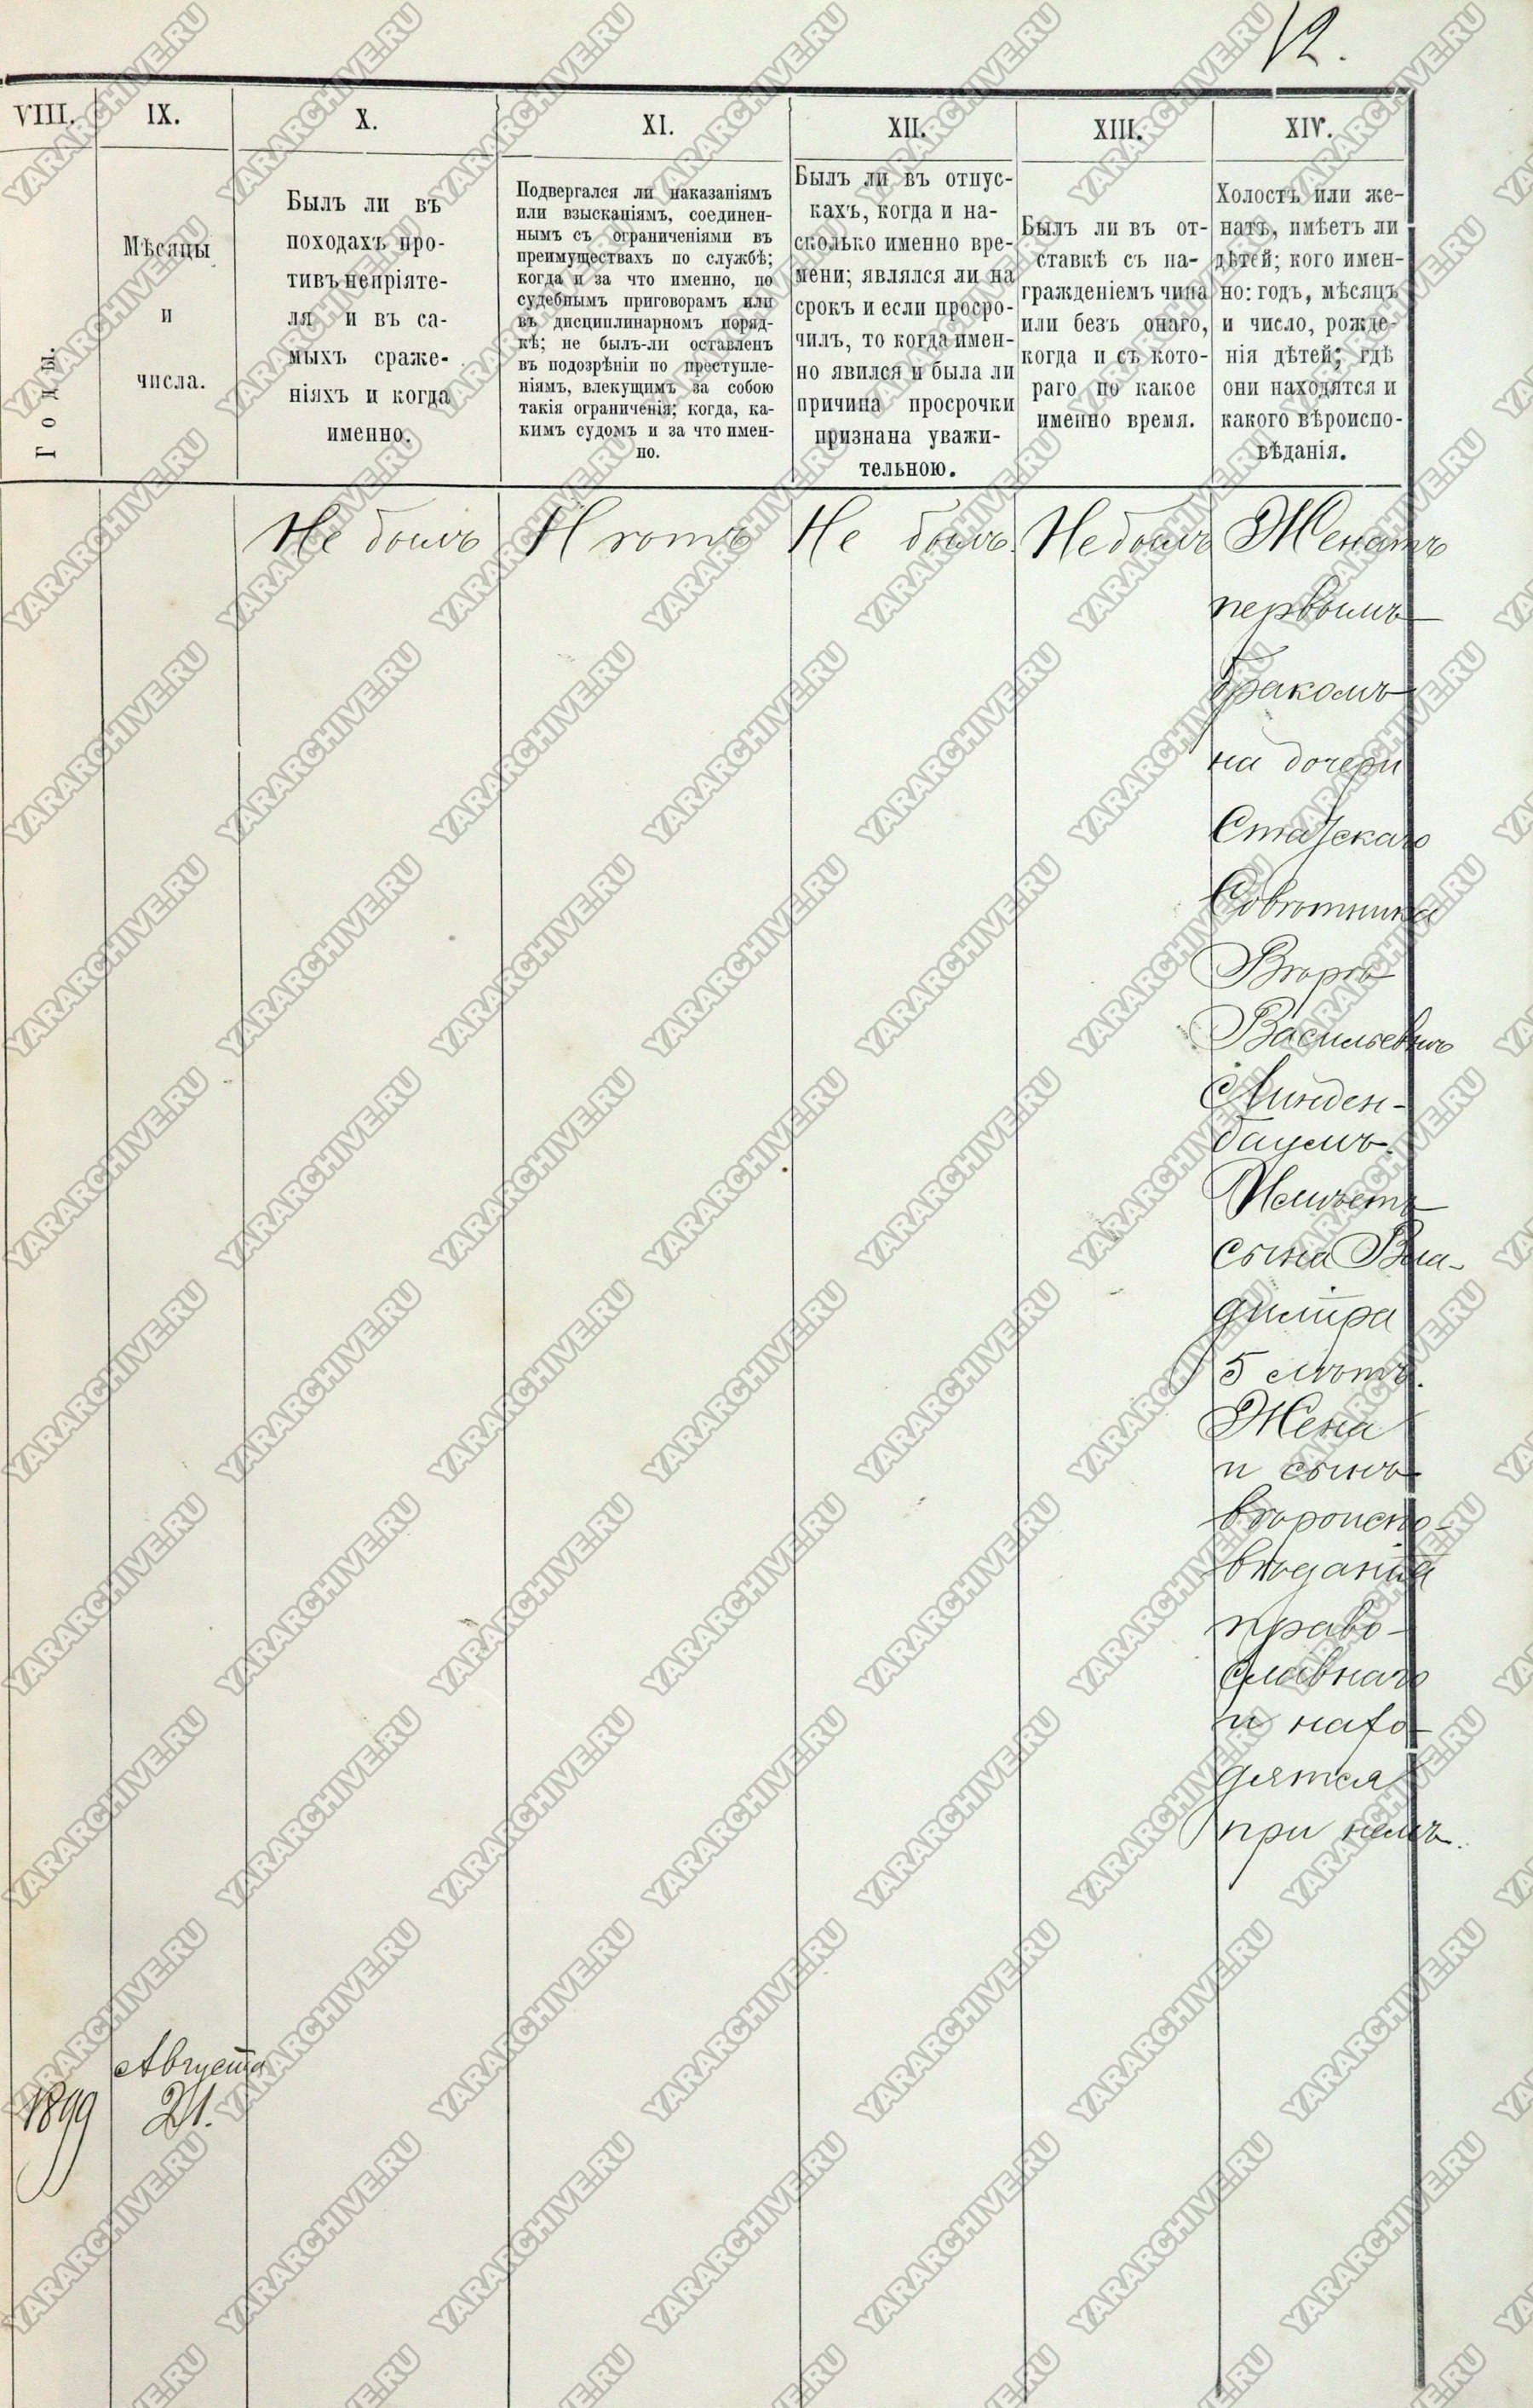 12.
VIII.
Годы.
IX.
Мѣсяцы
и
числа.
X.
Былъ ли въ
походахъ про-
тивъ непріяте-
ля и въ са-
мыхъ сраже-
ніяхъ и когда
именно.
XI.
Подвергался ли наказаніямъ
или взысканіямъ, соединен-
нымъ съ ограниченіями въ
преимуществахъ по службѣ;
когда и за что именно, по
судебнымъ приговорамъ или
въ дисциплинарномъ поряд-
кѣ; не былъ-ли оставленъ
въ подозрѣніи по преступле-
ніямъ, влекущимъ за собою
такія ограниченія; когда, ка-
кимъ судомъ и за что имен-
но.
XII.
Былъ ли въ отпус-
кахъ, когда и на-
сколько именно вре-
мени; являлся ли на
срокъ и если просро-
чилъ, то когда имен-
но явился и была ли
причина просрочки
признана уважи-
тельною.
XIII.
Былъ ли въ от-
ставкѣ съ на-
гражденіемъ чина
или безъ онаго,
когда и съ кото-
раго по какое
именно время.
XIV.
Холостъ или же-
натъ, имѣетъ ли
дѣтей; кого имен-
но: годъ, мѣсяцъ
и число, рожде-
нія дѣтей; гдѣ
они находятся и
какого вѣроиспо-
вѣданія.
Не былъ
Нѣтъ
Не былъ.
Не былъ
Женатъ
первымъ
бракомъ
на дочери
Статскаго
Совѣтника
Вѣрѣ
Васильевнѣ
Линден-
баумъ.
Имѣетъ
сына Вла-
диміра
5 лѣтъ.
Жена
и сынъ
вѣроиспо-
вѣданія
право-
славнаго
и нахо-
дятся
при немъ.
1899
Августа
21.
YARARCHIVE.RU